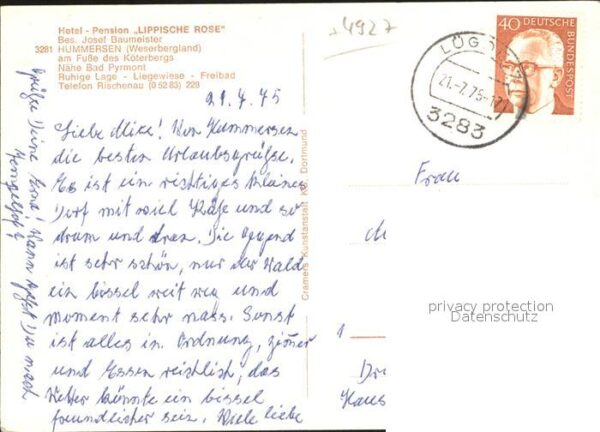 Hotel - Pension „LIPPISCHE ROSE"
Bes. Josef Baumeister
3281 HUMMERSEN (Weserbergland)
am Fuße des Köterbergs
Nähe Bad Pyrmont
Ruhige Lage - Liegewiese - Freibad
Telefon Rischenau (0 52 83) 229
21.7.75
Liebe Mike! Von Hummersen
die besten Urlaubsgrüße.
Es ist ein richtiges kleines
Dorf mit viel Kühe und so
drum und dran. Die Gegend
ist sehr schön, nur der Wald
ein bissel weit weg und
moment sehr nass. Sonst
ist alles in Ordnung, Zimmer
und Essen reichlich, das
Wetter könnte ein bissel
freundlicher sein. Viele liebe
Grüße Deine Erna! Wann fährst Du nach
Cramers Kunstanstalt KG. Dortmund
4927
40 DEUTSCHE BUNDESPOST
21.-7.75-17
3283
Frau
privacy protection
Datenschutz
Haus